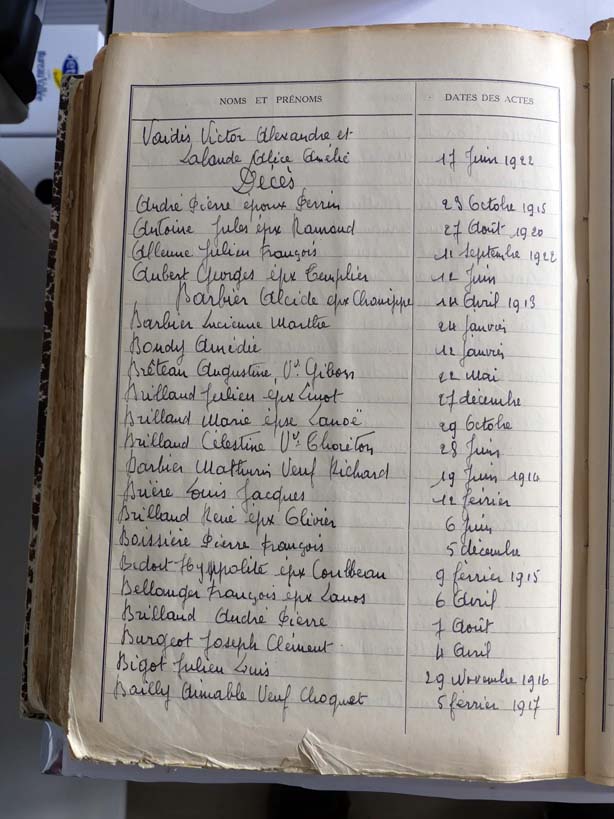 NOMS ET PRÉNOMS DATES DES ACTES
Vaidis Victor Alexandre et
Lalande Alice Amélie 17 Juin 1922
Décès
André Pierre époux Perrin 23 Octobre 1915
Antoine Jules épx Ramaud 27 Août 1920
Allenne Julien François 11 Septembre 1922
Aubert Georges épx Templier 12 Juin
Barbier Alcide épx 14 Avril 1913
Barbier Lucienne Marthe 24 Janvier
Boudy Amédée 12 Janvier
Bréteau Augustine Vve Gibon 22 Mai
Brilland Julien épx 27 décembre
Brilland Marie épse Lanoë 29 Octobre
Brilland Célestine Vve Choréton 28 Juin
Barbier Mathurin Veuf Richard 19 Juin 1914
Brière Louis Jacques 12 février
Brilland René épx Olivier 6 Juin
Boissière Pierre François 5 décembre
Bidoit Hyppolite épx 9 février 1915
Bellanger François épx Lanos 6 Avril
Brilland André Pierre 7 Août
Burgeot Joseph Clément 4 Avril
Bigot Julien Luis 29 Novembre 1916
Bailly Aimable Veuf Choquet 5 février 1917